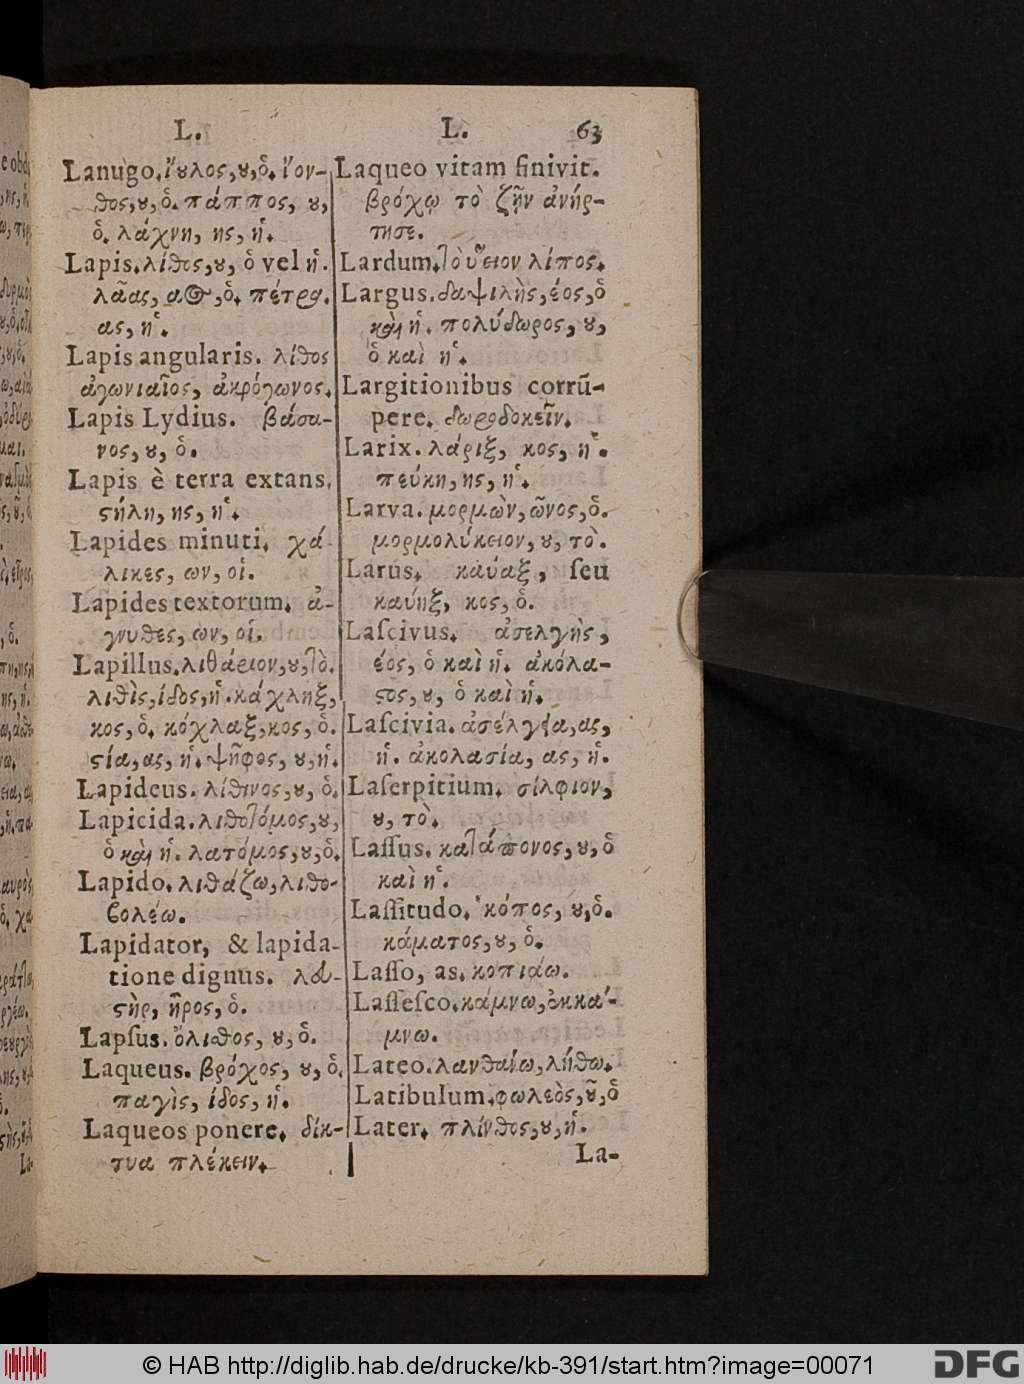 L.
Lanugo. ἴουλος, ου, ὁ. ἴον-
θος, ου, ὁ. πάππος, ου,
ὁ. λάχνη, ης, ἡ.
Lapis. λίθος, ου, ὁ vel ἡ.
λᾶας, αος, ὁ. πέτρα.
ας, ἡ.
Lapis angularis. λίθος
ἀγωνιαῖος, ἀκρόγωνος.
Lapis Lydius. βάσα-
νος, ου, ὁ.
Lapis è terra extans.
στήλη, ης, ἡ.
Lapides minuti. χά-
λικες, ων, οἱ.
Lapides textorum. ἀ-
γνυθες, ων, οἱ.
Lapillus. λιθάριον, ου, τὸ.
λιθὶς, ίδος, ἡ. κάχληξ,
κος, ὁ. κόχλαξ, κος, ὁ.
στία, ας, ἡ. ψῆφος, ου, ἡ.
Lapideus. λίθινος, ου, ὁ.
Lapicida. λιθοτόμος, ου,
ὁ καὶ ἡ. λατόμος, ου, ὁ.
Lapido. λιθάζω, λιθο-
βολέω.
Lapidator, & lapida-
tione dignus. λευ-
στὴρ, ῆρος, ὁ.
Lapſus. ὄλισθος, ου, ὁ.
Laqueus. βρόχος, ου, ὁ.
παγὶς, ίδος, ἡ.
Laqueos ponere. δίκ-
τυα πλέκειν.
L. 63
Laqueo vitam finivit.
βρόχῳ τὸ ζῆν ἀνήρ-
τησε.
Lardum. τὸ ὕειον λίπος.
Largus. δαψιλὴς, έος, ὁ
καὶ ἡ. πολύδωρος, ου,
ὁ καὶ ἡ.
Largitionibus corrū-
pere. δωροδοκεῖν.
Larix. λάριξ, κος, ἡ.
πεύκη, ης, ἡ.
Larva. μορμὼν, ῶνος, ὁ.
μορμολύκειον, ου, τὸ.
Larus. καύαξ, ſeu
καύηξ, κος, ὁ.
Laſcivus. ἀσελγὴς,
έος, ὁ καὶ ἡ. ἀκόλα-
στος, ου, ὁ καὶ ἡ.
Laſcivia. ἀσέλγεια, ας,
ἡ. ἀκολασία, ας, ἡ.
Laſerpitium. σίλφιον,
ου, τὸ.
Laſſus. κατάπονος, ου, ὁ
καὶ ἡ.
Laſſitudo. κόπος, ου, ὁ.
κάματος, ου, ὁ.
Laſſo, as. κοπιάω.
Laſſeſco. κάμνω, ἐκκά-
μνω.
Lateo. λανθάνω, λήθω.
Latibulum. φωλεὸς, οῦ, ὁ
Later. πλίνθος, ου, ἡ.
La-
© HAB http://diglib.hab.de/drucke/kb-391/start.htm?image=00071
DFG